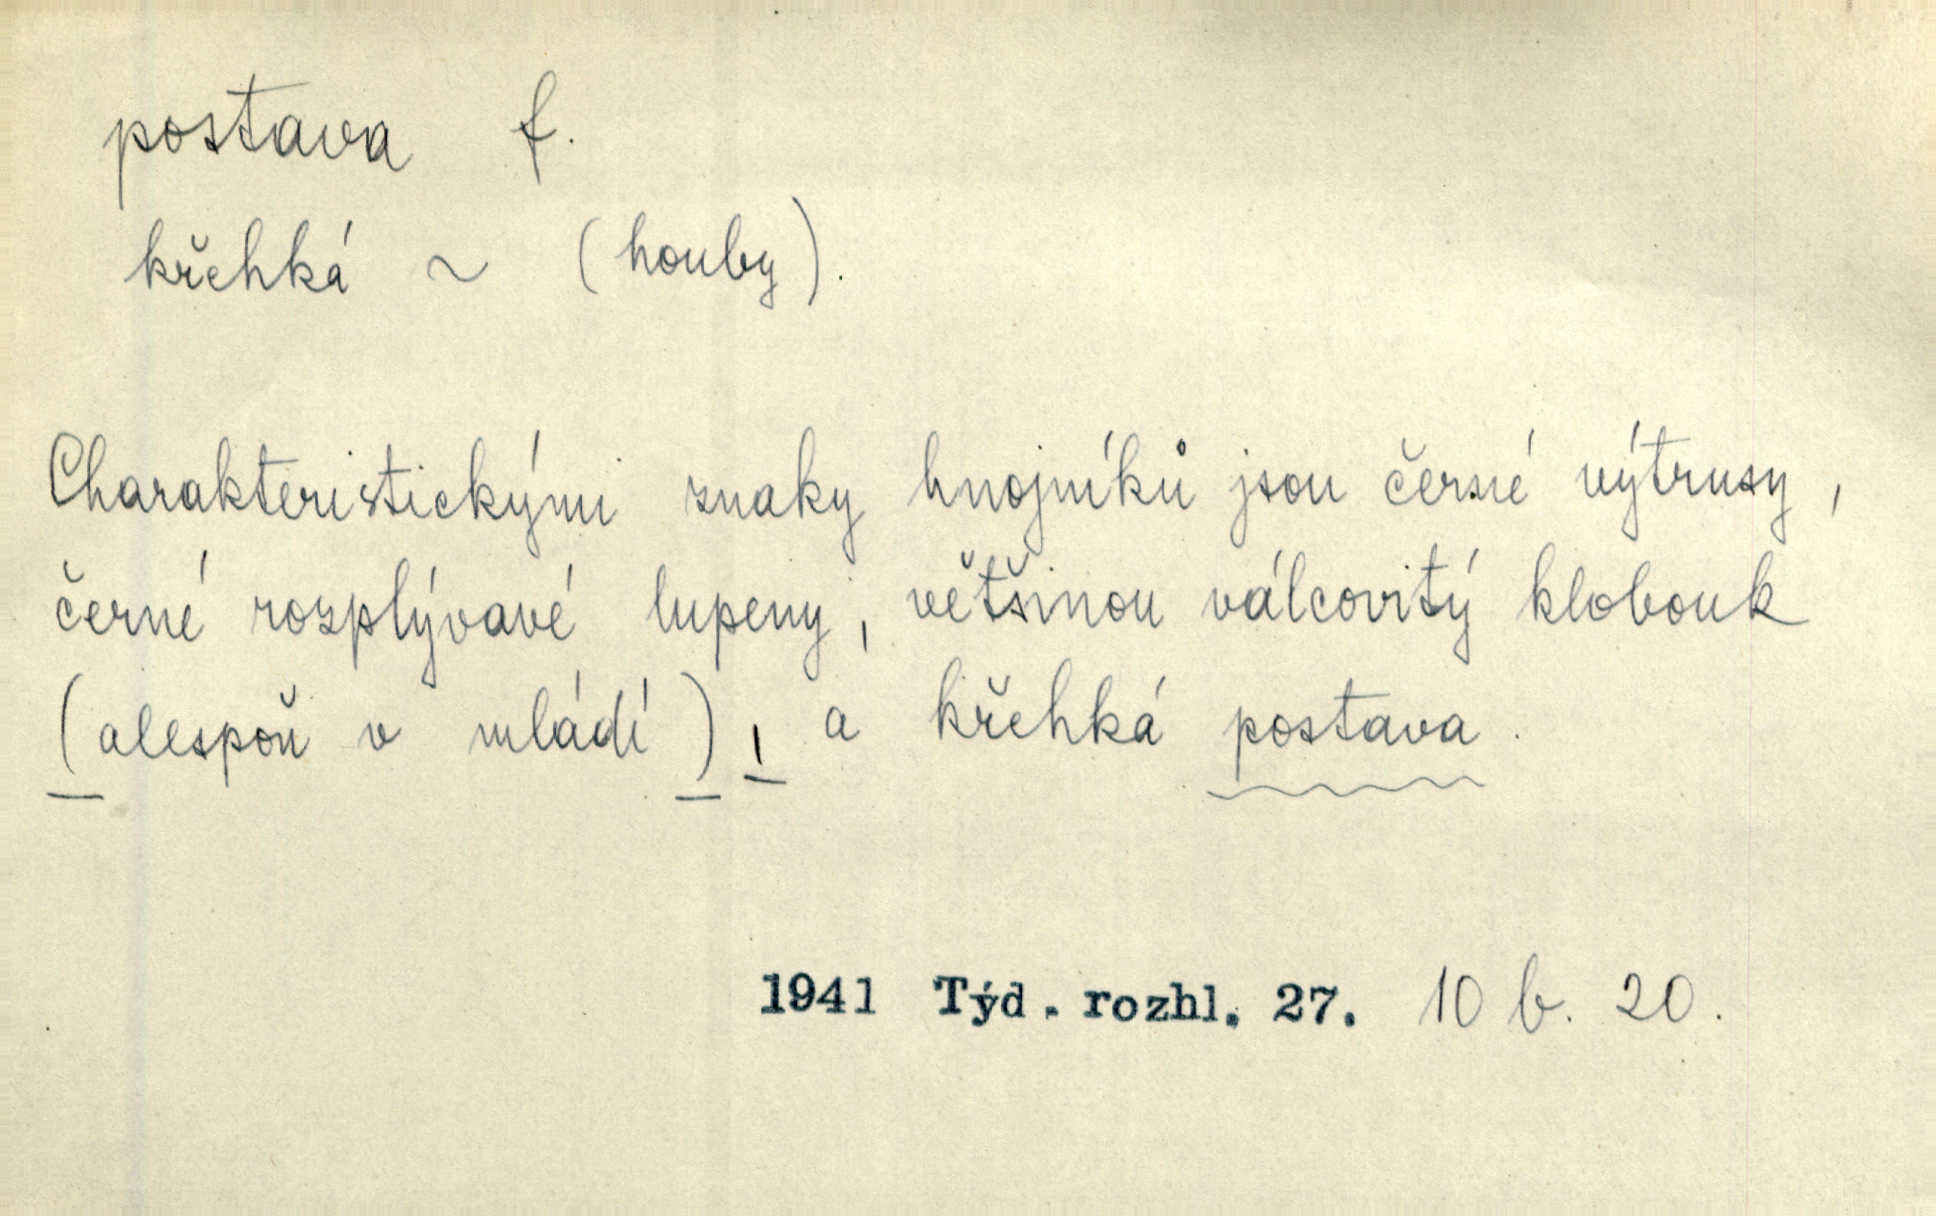 postava f.
křehká ~ (houby).
Charakteristickými znaky hnojníků jsou černé výtrusy,
černé rozplývavé lupeny, většinou válcovitý klobouk
(alespoň v mládí), a křehká postava.
1941 Týd. rozhl. 27. 10 b. 20.